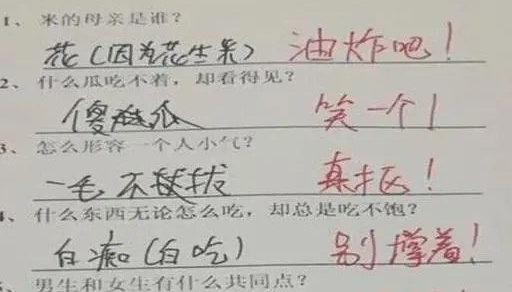 1、米的母亲是谁?
花(因为花生米) 油炸吧!
2、什么瓜吃不着,却看得见?
傻瓜 笑一个!
3、怎么形容一个人小气?
一毛不拔 真抠!
4、什么东西无论怎么吃,却总是吃不饱?
白痴(白吃) 别撑着!
5、男生和女生有什么共同点?